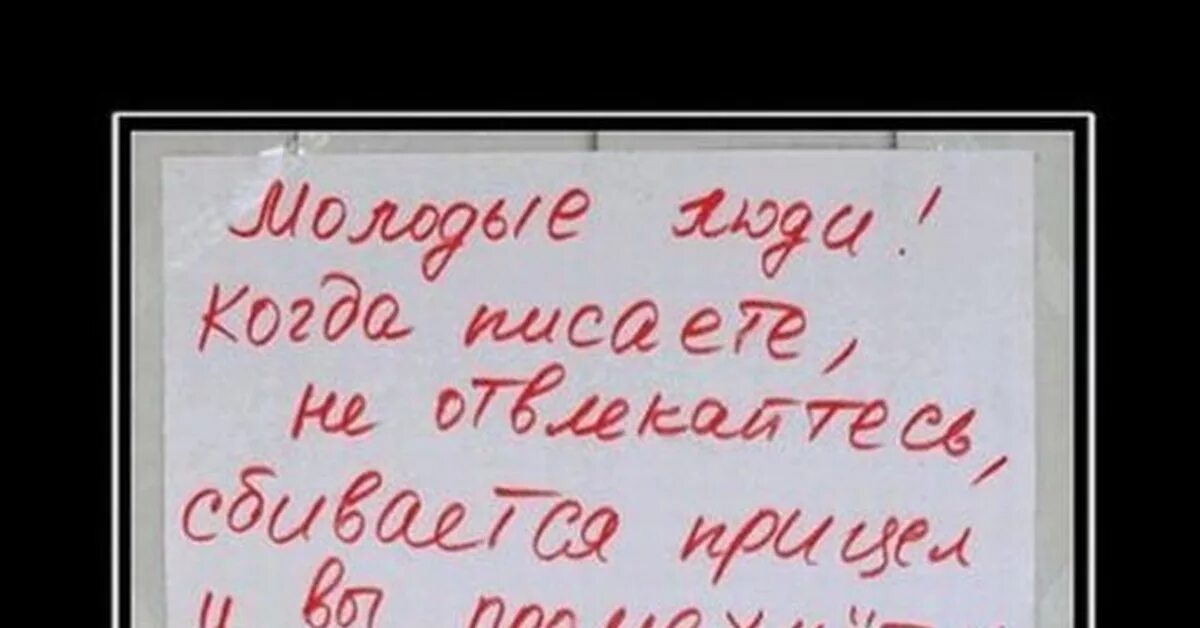 Молодые люди!
Когда писаете,
не отвлекайтесь,
сбивается прицел
и вы